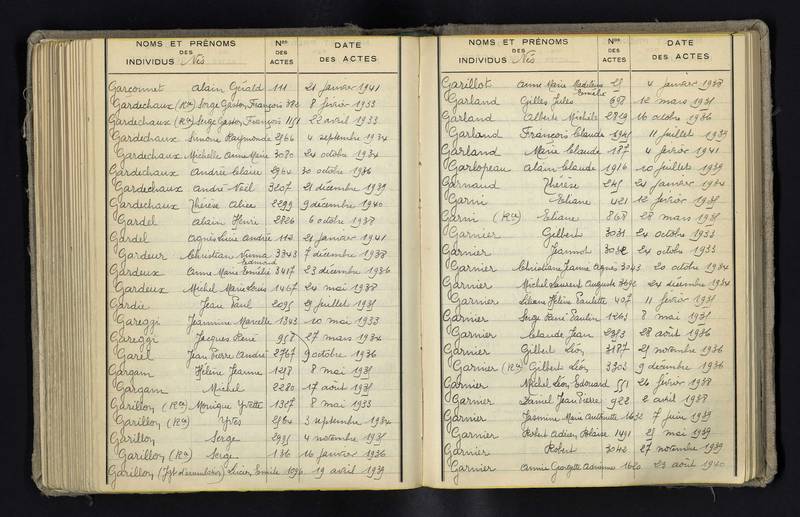 NOMS ET PRÉNOMS
DES
INDIVIDUS Nés
Nos
DES
ACTES
DATE
DES ACTES
Garçonnet Alain Gérald 111 21 janvier 1941
Gardechaux (Rct) Serge Gaston, François 382 8 février 1933
Gardechaux (Rct) Serge Gaston, François 1151 22 avril 1933
Gardechaux Simone Raymonde 2566 4 septembre 1934
Gardechaux Michelle Anne Marie 3080 24 octobre 1934
Gardechaux Andrée Claire 2964 30 octobre 1936
Gardechaux André Noël 3207 21 décembre 1939
Gardechaux Thérèse Alice 2299 9 décembre 1940
Gardel Alain Henri 2826 6 octobre 1938
Gardel Agnès Lucie Andrée 112 21 janvier 1941
Gardeur Christian Numa Edmond 3343 7 décembre 1938
Gardeux Anne Marie Emélie 3417 23 décembre 1936
Gardeux Michel Marie Louis 1467 24 mai 1938
Gardie Jean Paul 2095 29 juillet 1935
Gareggi Jeannine Marcelle 1343 10 mai 1933
Gareggi Jacques René 958 27 mars 1934
Garel Jean Pierre André 2767 9 octobre 1936
Gargam Hélène Jeanne 1258 8 mai 1935
Gargam Michel 2280 17 août 1935
Garillon (Rct) Monique Yvette 1307 8 mai 1933
Garillon (Rct) Yves 2564 3 septembre 1934
Garillon Serge 2995 4 novembre 1935
Garillon (Rct) Serge 136 16 janvier 1936
Garillon Lucien Emile 1096 19 avril 1939
NOMS ET PRÉNOMS
DES
INDIVIDUS Nés
Nos
DES
ACTES
DATE
DES ACTES
Garillot Anne Marie Madeleine Emélie 25 4 janvier 1938
Garland Gilles Jules 698 12 mars 1935
Garland Alberte Michèle 2829 16 octobre 1936
Garland François Claude 1925 11 juillet 1939
Garland Marie Claude 187 4 février 1941
Garlopeau Alain Claude 1916 10 juillet 1939
Garnaud Thérèse 245 24 janvier 1934
Garni Eliane 421 12 février 1935
Garni (Rct) Eliane 868 28 mars 1935
Garnier Gilbert 3031 24 octobre 1933
Garnier Jeannot 3032 24 octobre 1933
Garnier Christiane Jeanne Agnès 3043 20 octobre 1934
Garnier Michel Laurent Auguste 3692 24 décembre 1934
Garnier Liliane Hélène Paulette 407 11 février 1935
Garnier Serge René Paulin 1263 8 mai 1935
Garnier Claude Jean 2353 28 août 1936
Garnier Gilbert Léon 3187 25 novembre 1936
Garnier (Rct) Gilbert Léon 3303 9 décembre 1936
Garnier Michel Léon Edouard 551 24 février 1938
Garnier Daniel Jean Pierre 922 2 avril 1938
Garnier Jasmine Marie Antoinette 1632 7 juin 1939
Garnier Robert Adrien Blaise 1491 25 mai 1939
Garnier Robert 3042 27 novembre 1939
Garnier Annie Georgette Adrienne 1620 23 août 1940